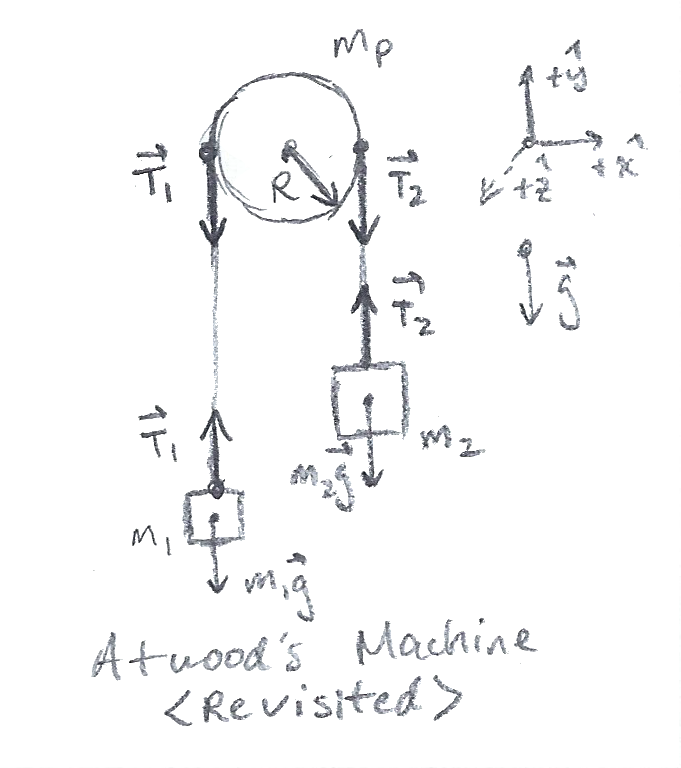 mp
+ŷ
T⃗₁
R
T⃗₂
+x̂
+ẑ
T⃗₂
g⃗
T⃗₁
m₂
m₂g⃗
m₁
m₁g⃗
Atwood's Machine
<Revisited>